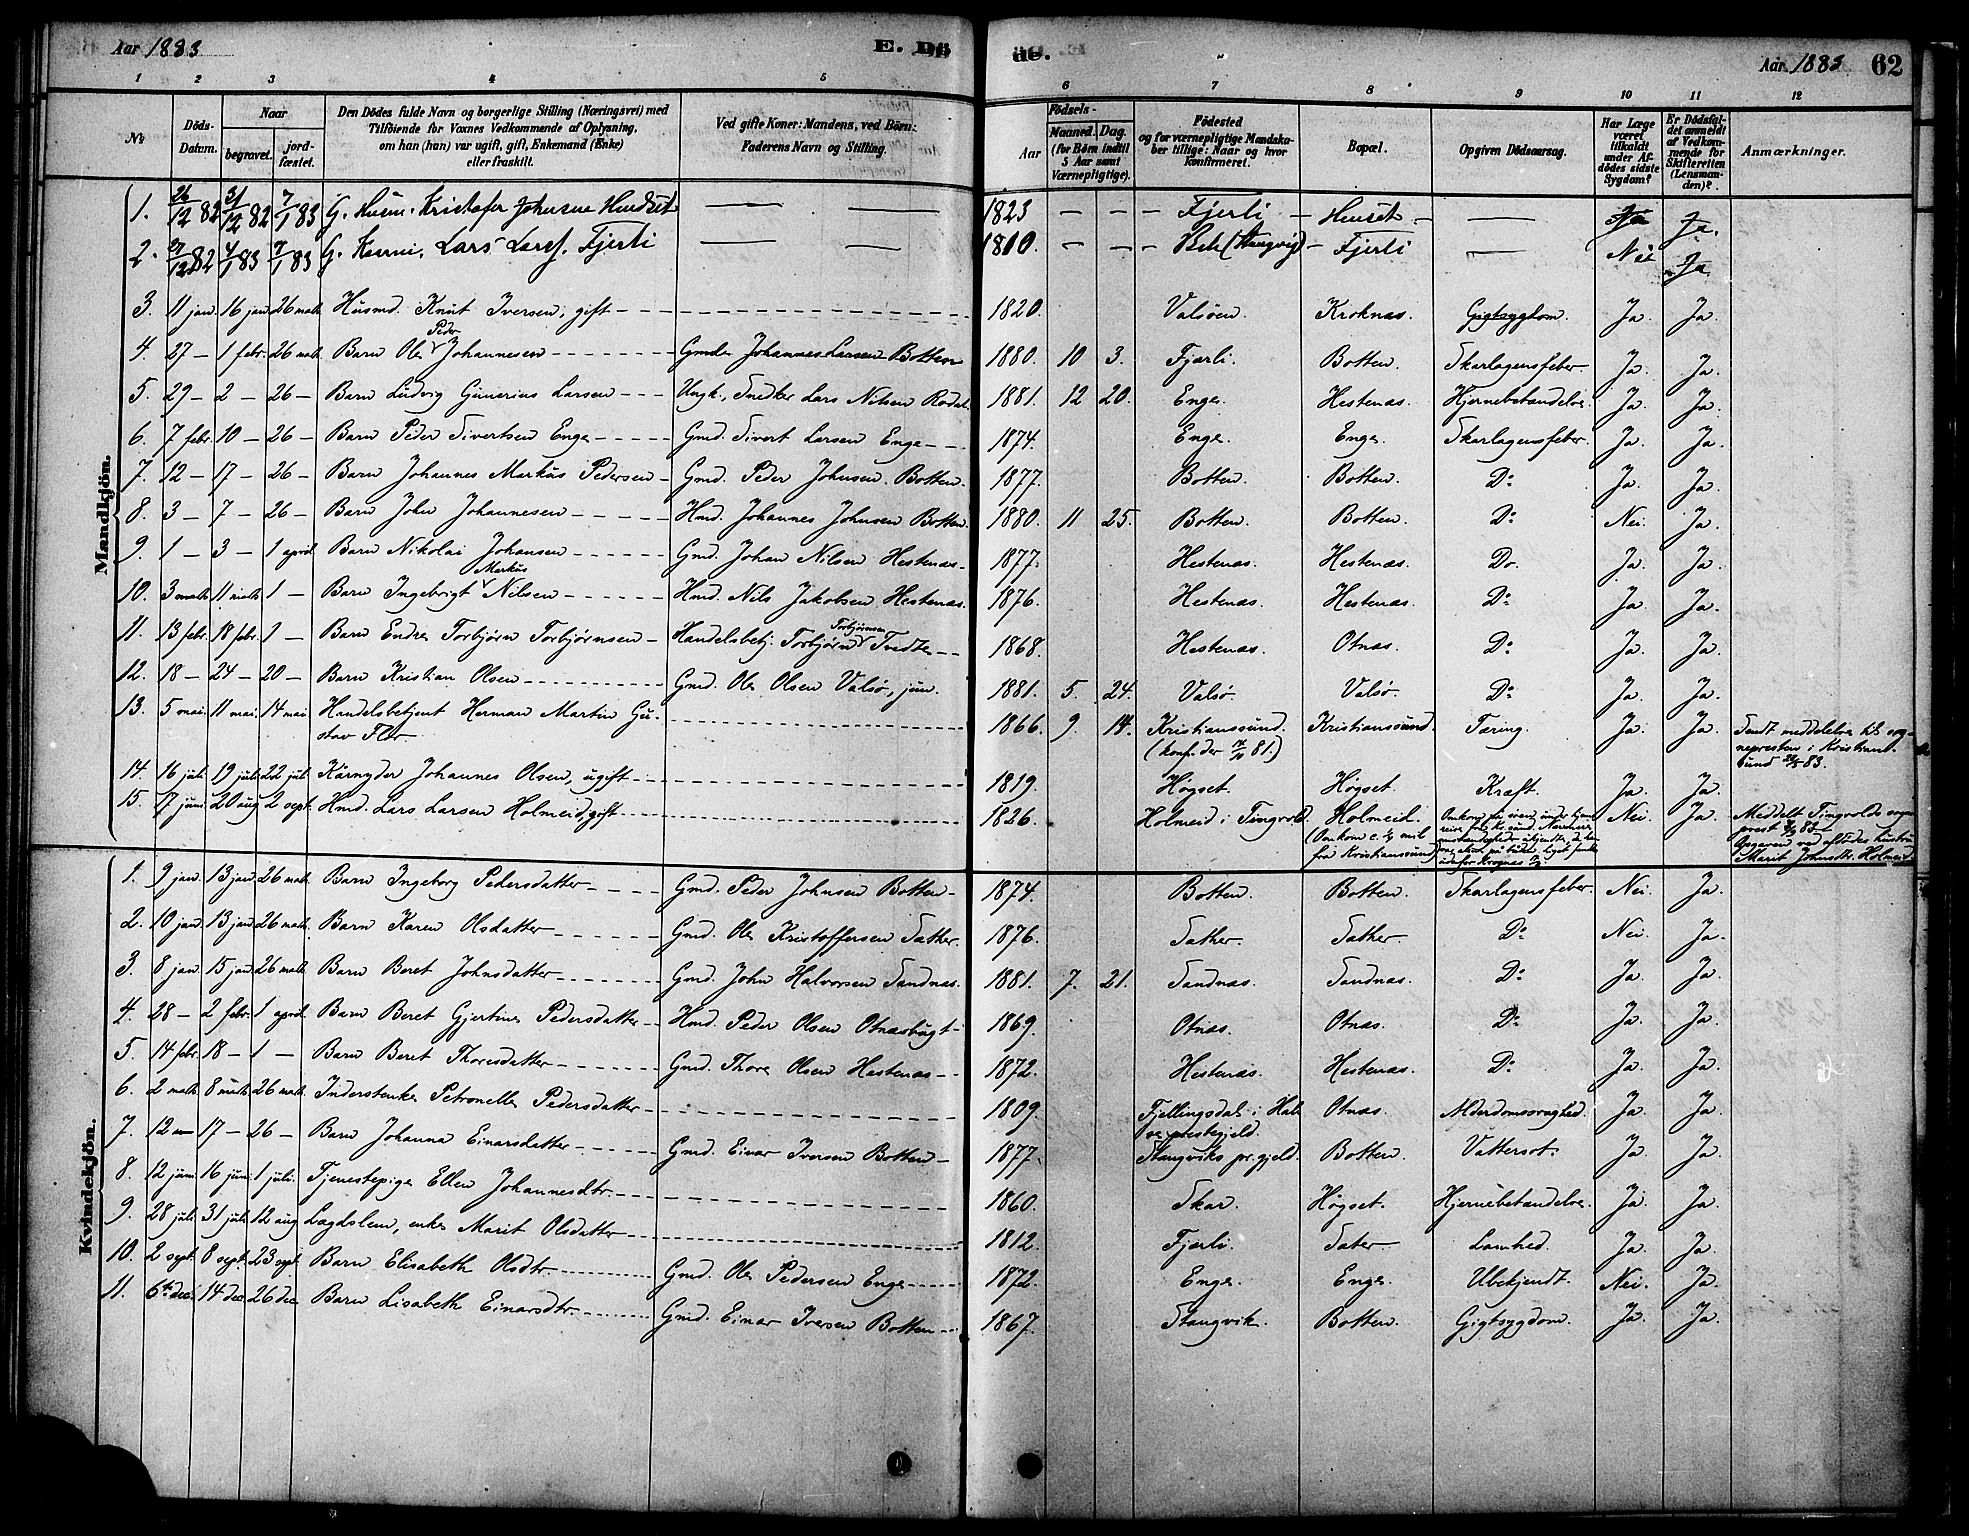 Aar 1883
E. Dö
de.
Aar 1883
62
1 2 3 4 5 6 7 8 9 10 11 12
№
Döds-Datum.
Naar begravet. jord-fæstet.
Den Dödes fulde Navn og borgerlige Stilling (Næringsvei) med
Tilföiende for Voxnes Vedkommende af Oplysning,
om han (hun) var ugift, gift, Enkemand (Enke)
eller fraskilt.
Ved gifte Koner: Mandens, ved Börn:
Faderens Navn og Stilling.
Födsels-
Aar Maaned. Dag.
(for Börn indtil
5 Aar samt
Værnepligtige).
Födested
og for værnepligtige Mandska-
ber tillige: Naar og hvor
konfirmeret.
Bopæl.
Opgiven Dödsaarsag.
Har Læge
været
tilkaldt
under Af-
dödes sidste
Sygdom?
Er Dödsfal-
det anmeldt
af Vedkom-
mende for
Skifteretten
(Lensman-
den)?
Anmærkninger.
Mandkjön.
1. 26/12 82 31/12 82 7/1 83 G. Husm. Kristofer Johnsen 1823 – – – Fjerli – Henset – — Ja Ja.
2. 27/12 82 4/1 83 7/1 83 G. Lars Lars. Fjerli 1810. – – – (Stangvig) – Fjerli — Nei Ja
3. 11 jan. 16 jan. 26 mat. Husmd. Knut Iversen, gift 1820. Valsöen. Kroknæs. Gigtsygdom. Ja. Ja.
4. 27 – 1 febr. 26 mat. Barn Ole Peder Johannesen Gmd. Johannes Larsen Botten 1880. 10 3. Fjærli. Botten. Skarlagensfeber Ja. Ja.
5. 29 – 2 – 26 – Barn Ludvig Gunerius Larsen Ungk., Snedker Lars Nilsen 1881. 12 20. Enge. Hestenæs. Hjernebetændelse. Ja. Ja.
6. 7 febr. 10 – 26 – Barn Peder Sivertsen Enge Gmd. Sivert Larsen Enge 1874. Enge. Enge. Skarlagensfeber. Ja. Ja.
7. 12 – 17 – 26 – Barn Johannes Markus Pedersen Gmd. Peder Johnsen Botten. 1877. Botten. Botten. Do Ja. Ja.
8. 3 – 7 – 26 – Barn John Johannesen Hmd. Johannes Johnsen Botten. 1880. 11 25. Botten. Botten. Do Nei. Ja.
9. 1 – 3 – 1 april Barn Nikolai Johansen Gmd. Johan Nilsen Hestenæs. 1877. Hestenæs. Hestenæs. Do. Ja. Ja.
10. 3 mats 11 mats 1 – Barn Ingebrigt Markus Nilsen Hmd. Nils Jakobsen Hestenæs. 1876. Hestenæs. Hestenæs. Do Ja. Ja.
11. 13 febr. 18 febr. 1 – Barn Endre Torbjørn Torbjørnsen Handelsbetj. Torbjørn Torbjørnsen Tvedte 1868. Hestenæs. Otnæs. Do Ja. Ja.
12. 18 – 24 – 20 – Barn Kristian Olsen Gmd. Ole Olsen Valsø, jun. 1881. 5. 24. Valsø. Valsø. Do Ja. Ja.
13. 5 mai. 11 mai. 14 mai Handelsbetjent Herman Martin Gu-
stav Flor. 1866. 9. 14. Kristianssund. (konf. der 81.) Kristianssund. Tæring. Ja. Ja. Sendt meddelelse til sog-
nepresten i Kristian-
sund 83.
14. 16 juli. 19 juli. 22 juli. Johannes Olsen, ugift 1819. Høgset. Høgset. Kræft. Ja. Ja.
15. 17 juni. 20 aug. 2 sept. Hmd. Lars Larsen Holmeid, gift 1826. Holmeid i Tingvold. Holmeid. (Omkom c. ½ mil
fra Kristianssund) Nei. Ja. Meddelt Tingvolds sogne-
prest 83.
Marit Johnsdtr. Holmeid.
Kvindekjön.
1. 9 jan. 13 jan. 26 mat. Barn Ingeborg Pedersdatter Gmd. Peder Johnsen Botten 1874. Botten. Botten. Skarlagensfeber. Nei. Ja.
2. 10 jan. 13 jan. 26 mat. Barn Karen Olsdatter Gmd. Ole Kristoffersen Sæther. 1876. Sæther. Sæther. Do Nei. Ja.
3. 8 jan. 15 jan. 26 mat. Barn Beret Johnsdatter Gmd. John Halvorsen Sandnæs. 1881. 7. 21. Sandnæs. Sandnæs. Do Ja. Ja.
4. 28 – 2 febr. 1 april. Barn Beret Gjertine Pedersdatter Hmd. Peder Olsen Otnæsbugt 1869. Otnæs. Otnæs. Do Ja. Ja.
5. 14 febr. 18 – 1 – Barn Beret Thoresdatter Gmd. Thore Olsen Hestenæs 1872. Hestenæs. Hestenæs. Do Ja. Ja.
6. 2 mats 8 mats 26 mats. Inderstenke Petronelle Pedersdatter 1809. Fjellingsdal i Hal-
se prestegjeld. Otnæs. Alderdomssvaghed. Ja. Ja.
7. 12 – 17 – 26 – Barn Johanna Einarsdatter Gmd. Einar Iversen Botten 1877. Stangviks pr.gjeld. Botten. Vattersot. Ja. Ja.
8. 12 juni. 16 juni. 1 juli. Tjenestepige Ellen Johannesdtr. 1860. Skar. Høgset. Hjernebetændelse. Ja. Ja.
9. 28 juli. 31 juli. 12 aug. Lægdslem, enke Marit Olsdatter 1812. Fjærli. Sæter. Lamhed. Ja. Ja.
10. 2 sept. 8 sept. 23 sept. Barn Elisabeth Olsdtr. Gmd. Ole Pedersen Enge 1872. Enge. Enge. Ubekjendt. Nei. Ja.
11. 6te dec. 14 dec. 26 dec. Barn Lisabeth Einarsdtr. Gmd. Einar Iversen Botten 1867. Stangvik. Botten. Gigtsygdom. Ja. Ja.